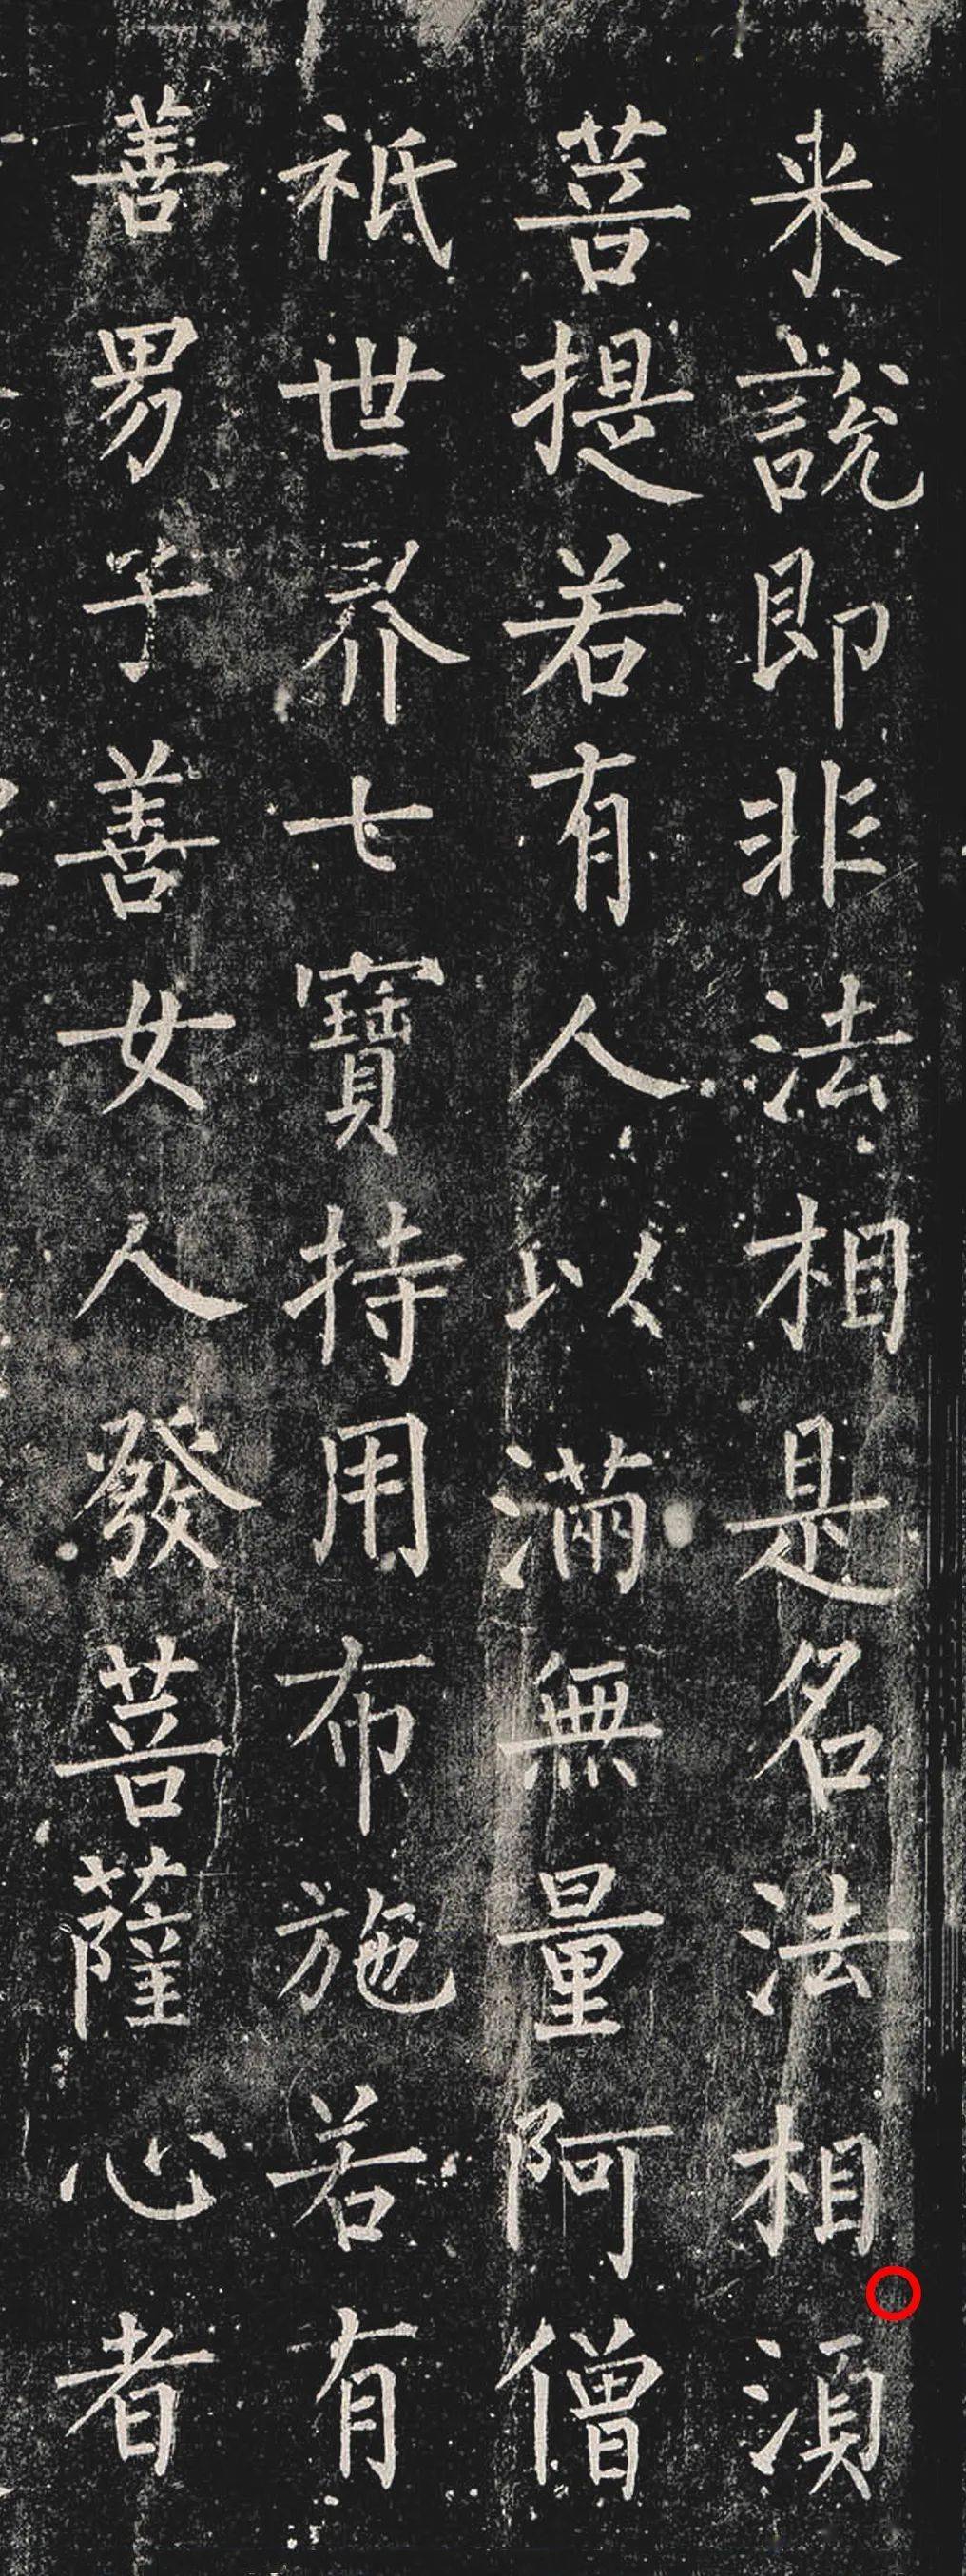 来說即非法相是名法相湏
菩提若有人以滿無量阿僧
祇世界七寶持用布施若有
善男子善女人發菩薩心者